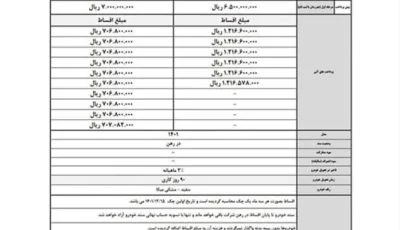 ۷.۰۰۰.۰۰۰.۰۰۰ ریال
۶.۵۰۰.۰۰۰.۰۰۰ ریال
مبلغ اقساط
مبلغ اقساط
۷۰۶.۸۰۰.۰۰۰ ریال
۱.۴۱۶.۶۰۰.۰۰۰ ریال
۷۰۶.۸۰۰.۰۰۰ ریال
۱.۴۱۶.۶۰۰.۰۰۰ ریال
۷۰۶.۸۰۰.۰۰۰ ریال
۱.۴۱۶.۶۰۰.۰۰۰ ریال
۷۰۶.۸۰۰.۰۰۰ ریال
۱.۴۱۶.۶۰۰.۰۰۰ ریال
۷۰۶.۸۰۰.۰۰۰ ریال
۱.۴۱۶.۶۰۰.۰۰۰ ریال
۷۰۶.۸۰۰.۰۰۰ ریال
۱.۴۱۶.۵۷۸.۰۰۰ ریال
۷۰۶.۸۰۰.۰۰۰ ریال
-
۷۰۶.۸۰۰.۰۰۰ ریال
-
۷۰۶.۸۰۰.۰۰۰ ریال
-
۷۰۷.۰۸۴.۰۰۰ ریال
-
مدل
۱۴۰۱
وضعیت سند
در رهن
سود مشارکت
-
-
۳٪ ماهیانه
زمان تحویل خودرو
۹۰ روز کاری
رنگ خودرو
سفید - مشکی متالیک
اقساط بصورت هر سه ماه یک چک محاسبه گردیده است و تاریخ اولین چک ۱۴۰۱/۱۲/۱۵ می باشد.
سند خودرو تا پایان اقساط در رهن شرکت باقی خواهد ماند و تنها با تسویه حساب نهائی سند خودرو آزاد خواهد شد